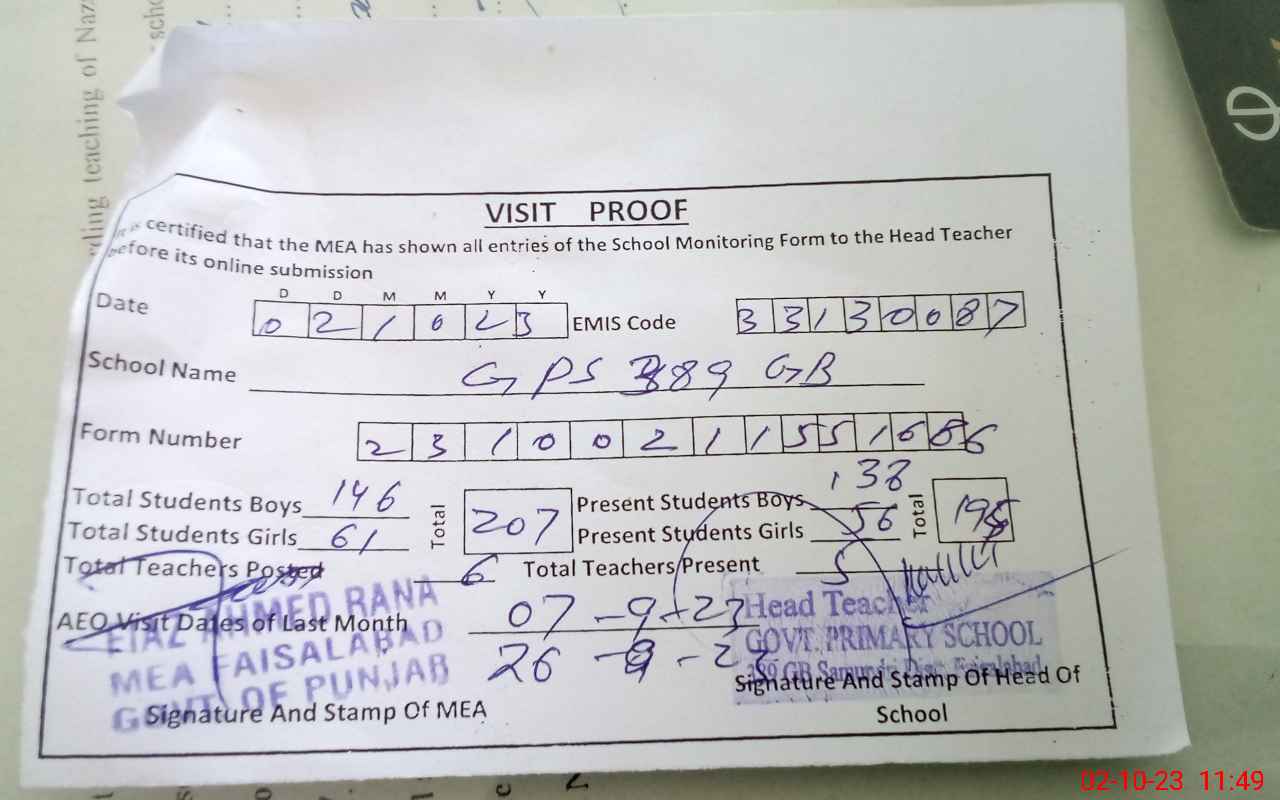 VISIT PROOF
certified that the MEA has shown all entries of the School Monitoring Form to the Head Teacher
before its online submission
D D M M Y Y
Date 0 2 1 0 2 3 EMIS Code 3 3 1 3 0 0 8 7
School Name GPS 389 GB
Form Number 2 3 1 0 0 2 1 1 5 5 1 6 8 6
Total Students Boys 146 Total 207 Present Students Boys 138 Total
Total Students Girls 61 Present Students Girls 56
Total Teachers Posted 6 Total Teachers Present 5
AEO Visit Dates of Last Month 07-9-23
26-9-23
AHMED RANA
MEA FAISALABAD
GOVT OF PUNJAB
Signature And Stamp Of MEA
Head Teacher
GOVT. PRIMARY SCHOOL
389 GB Faisalabad
Signature And Stamp Of Head Of
School
teaching of Naz
02-10-23 11:49